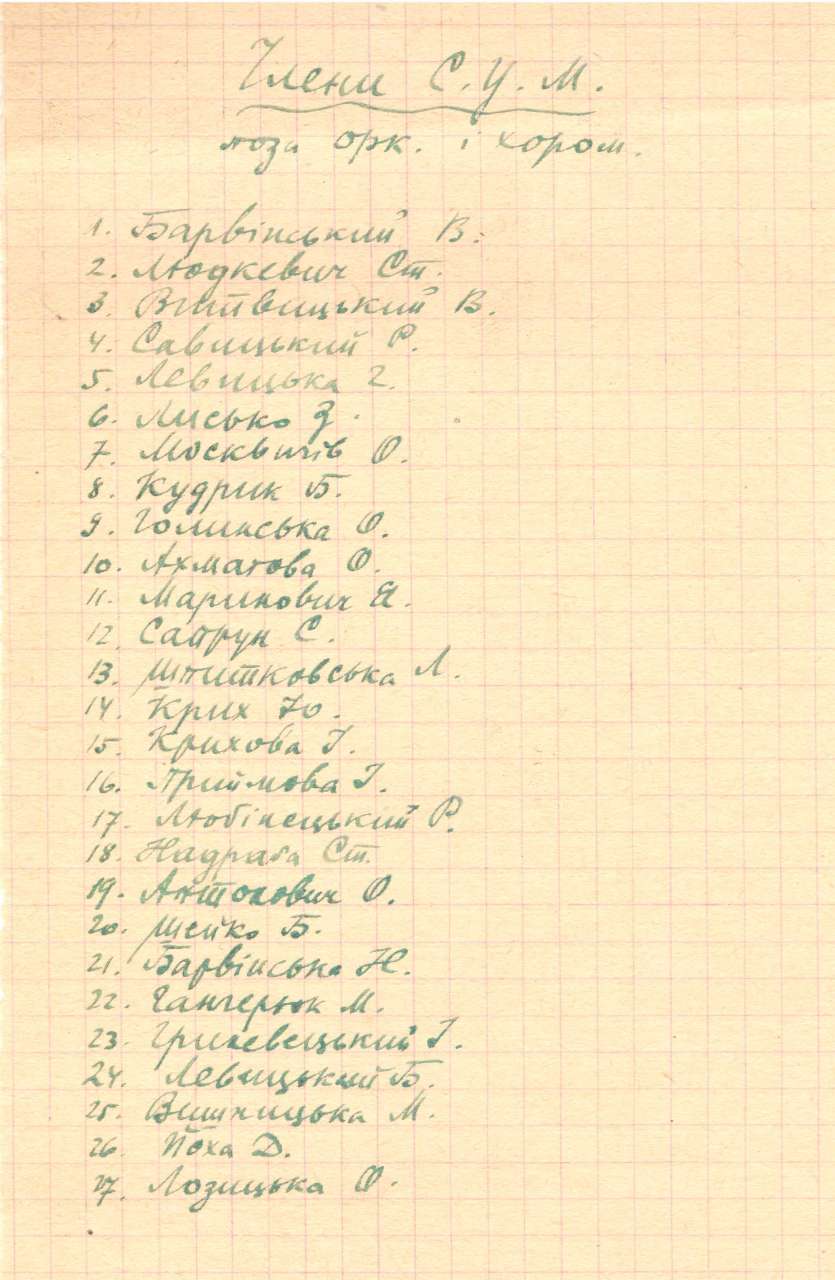 Члени С.У.М.
поза орк. і хором.
1. Барвінський В.
2. Людкевич Ст.
3. Витвицький В.
4. Савицький Р.
5. Левицька Г.
6. Лисько З.
7. Москвичів О.
8. Кудрик Б.
9. Голинська О.
10. Ахматова О.
11. Маринович Я.
12. Сапрун С.
13. Шпитковська Л.
14. Крих Ю.
15. Крихова І.
16. Приймова І.
17. Любінецький Р.
18. Надрага Ст.
19. Антонович О.
20. Шейко Б.
21. Барвінська Н.
22. М.
23. Гриневецький І.
24. Левицький Б.
25. Вишницька М.
26. Йоха Д.
27. Лозицька О.